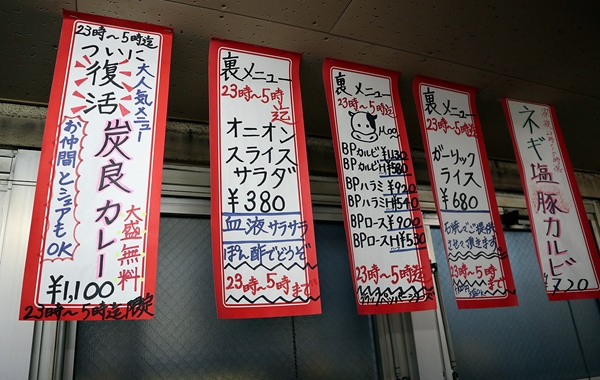 23時〜5時迄
ついに
復活
大人気メニュー
炭良カレー
お仲間とシェアも
OK
大盛無料
¥1,100
23時〜5時迄限定
裏メニュー
23時〜5時
迄
オニオン
スライス
サラダ
¥380
血液サラサラ
ぽん酢でどうぞ
23時〜5時まで
裏メニュー
23時〜5時迄
BPカルビ¥1,130
BPカルビH¥580
BPハラミ¥920
BPハラミH¥540
BPロース¥900
BPロースH¥530
23時〜5時迄
裏メニュー
23時〜5時迄
ガーリック
ライス
¥680
石焼でご提供
させて頂きます
23時〜5時
ネギ塩豚カルビ
¥720